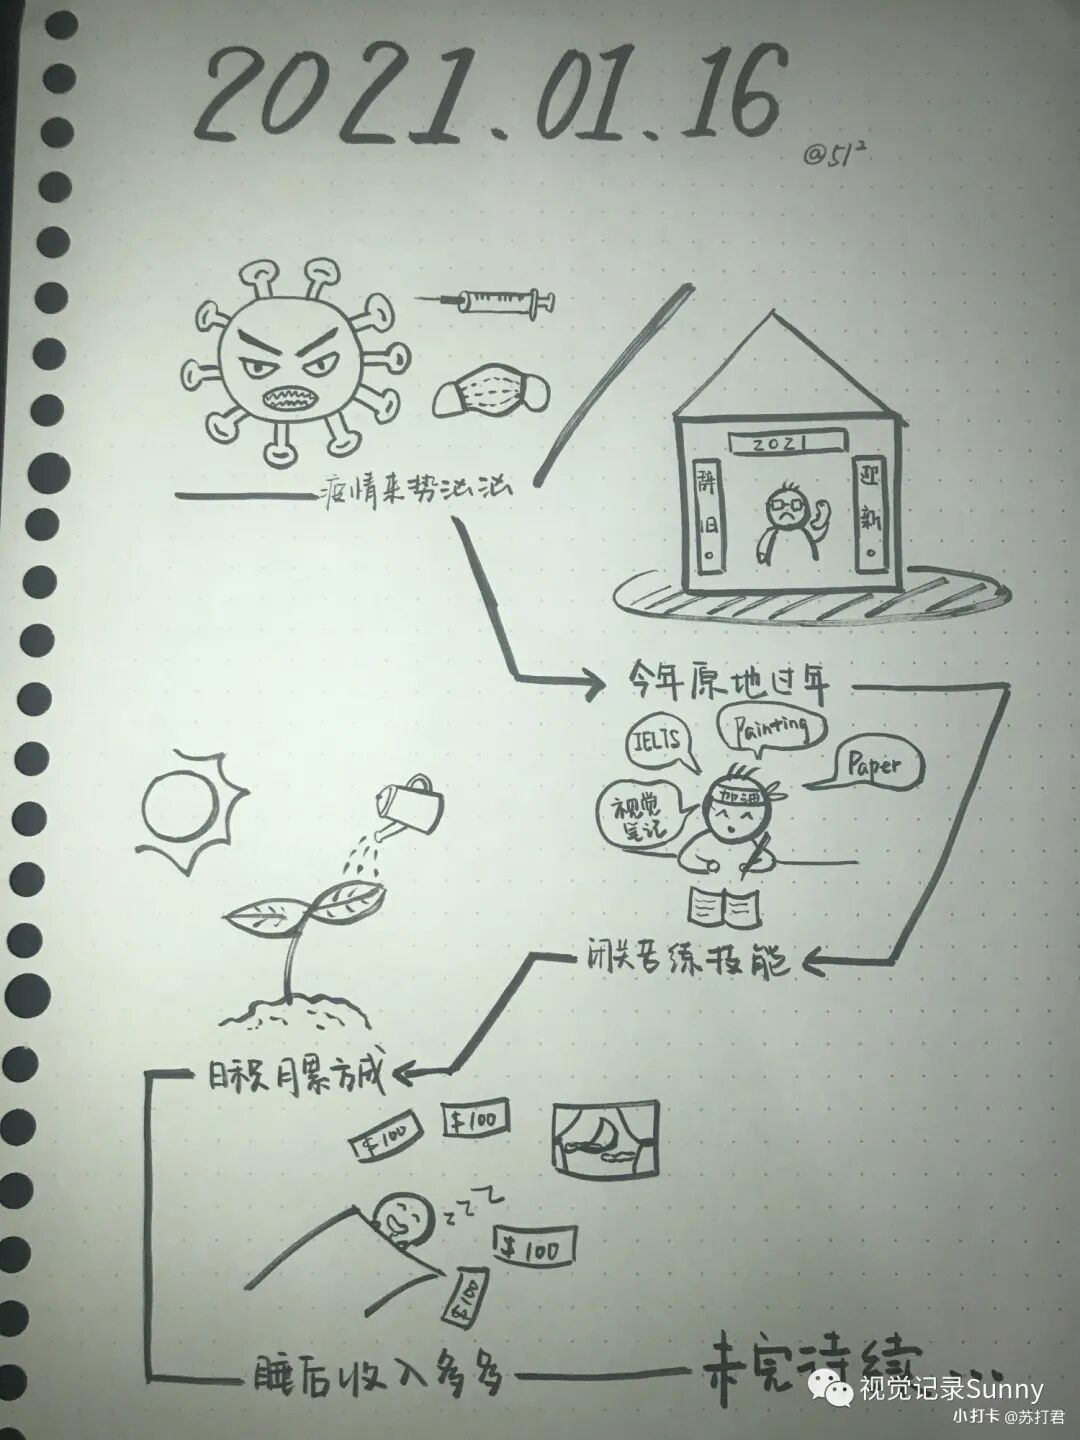 2021.01.16
@51²
疫情来势汹汹
2021
辞旧。
迎新。
今年原地过年
IELTS
Painting
Paper
视觉
笔记
加油
闭关苦练技能
日积月累方成
$100
$100
zzz
$100
$100
睡后收入多多
未完待续...
视觉记录Sunny
小打卡@苏打君